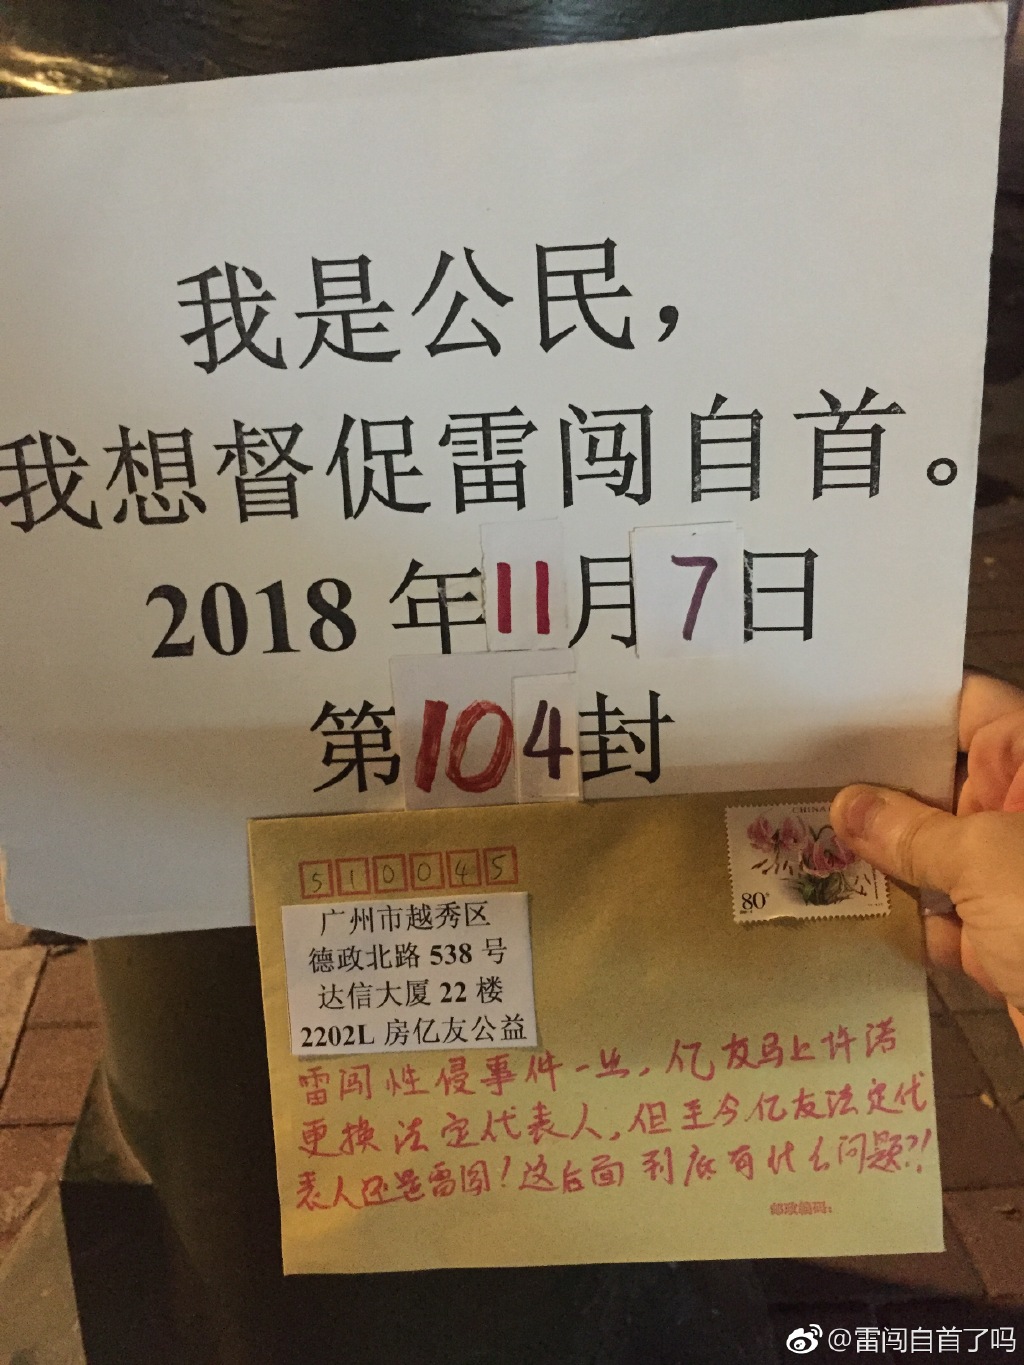 我是公民，
我想督促雷闯自首。
2018年11月7日
第104封
CHINA
80分
510045
广州市越秀区
德政北路538号
达信大厦22楼
2202L房亿友公益
雷闯性侵事件一出，亿友马上许诺
更换法定代表人，但至今亿友法定代
表人还是雷闯！这后面到底有什么问题?!
邮政编码：
@雷闯自首了吗